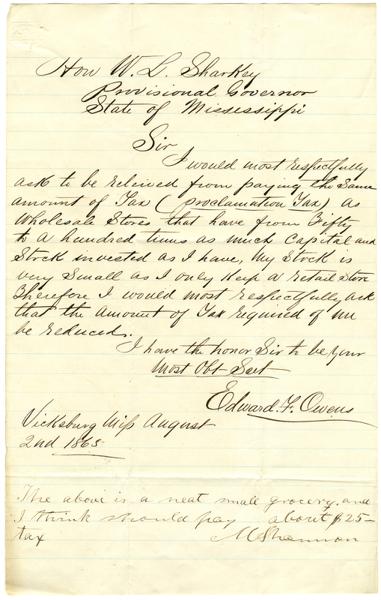 Hon W. L. Sharkey
Provisional Governor
State of Mississippi
Sir
I would most respectfully
ask to be releived from paying the Same
amount of Tax (proclamation Tax) as
Wholesale Stores that have from Fifty
to a hundred times as much Capital and
Stock invested as I have, My Stock is
very Small as I only Keep a retail Store
Therefore I would most respectfully ask
that the amount of Tax required of me
be reduced.
I have the honor Sir to be your
Most Obt Sevt
Edward F. Owens
Vicksburg Miss August
2nd 1865
The above is a neat small grocery and
I think should pay about $25—
tax M Shannon